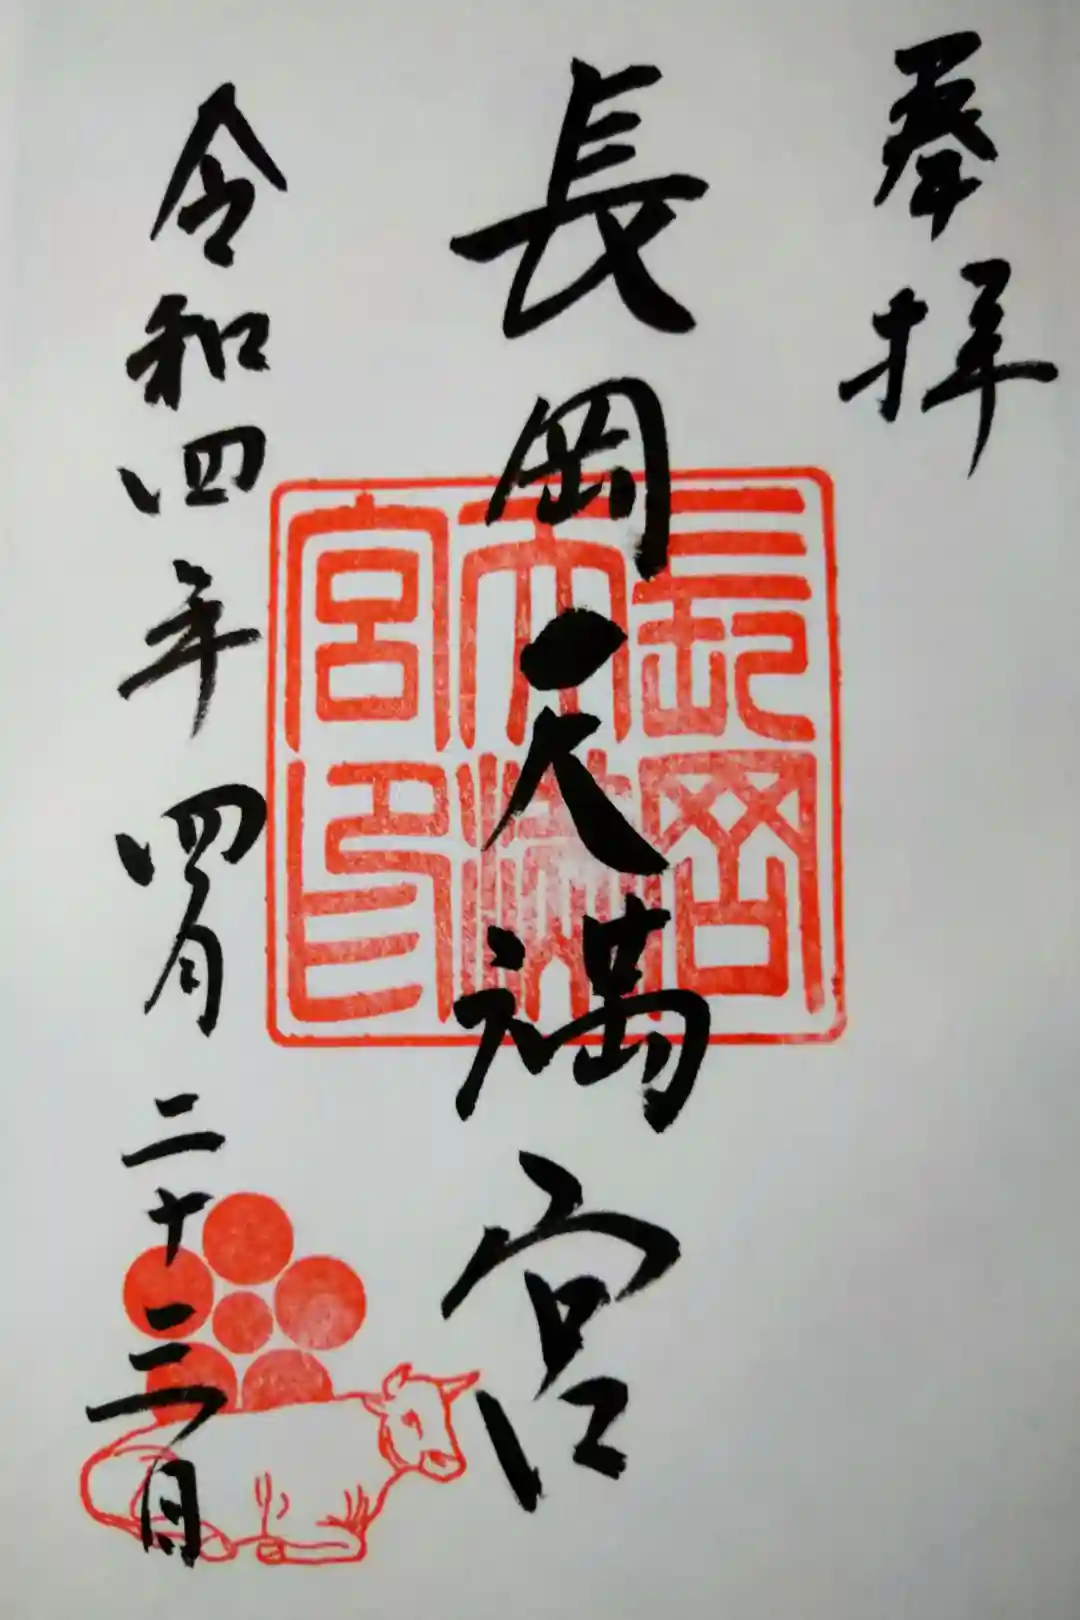 奉拝
長岡天満宮
令和四年四月二十三日
長岡
天満
宮印